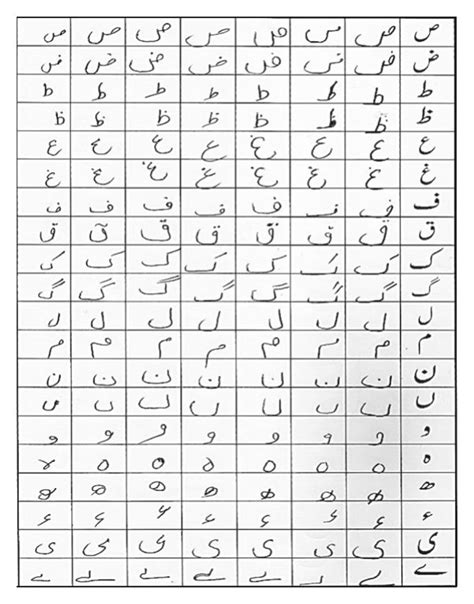 ص ص ص ص ص ص ص ص
ض ض ض ض ض ض ض ض
ط ط ط ط ط ط ط ط
ظ ظ ظ ظ ظ ظ ظ ظ
ع ع ع ع ع ع ع ع
غ غ غ غ غ غ غ غ
ف ف ف ف ف ف ف ف
ق ق ق ق ق ق ق ق
ک ک ک ک ک ک ک ک
گ گ گ گ گ گ گ گ
ل ل ل ل ل ل ل ل
م م م م م م م م
ن ن ن ن ن ن ن ن
ں ں ں ں ں ں ں ں
و و و و و و و و
ہ ہ ہ ہ ہ ہ ہ ہ
ھ ھ ھ ھ ھ ھ ھ ھ
ء ء ء ء ء ء ء ء
ی ی ی ی ی ی ی ی
ے ے ے ے ے ے ے ے